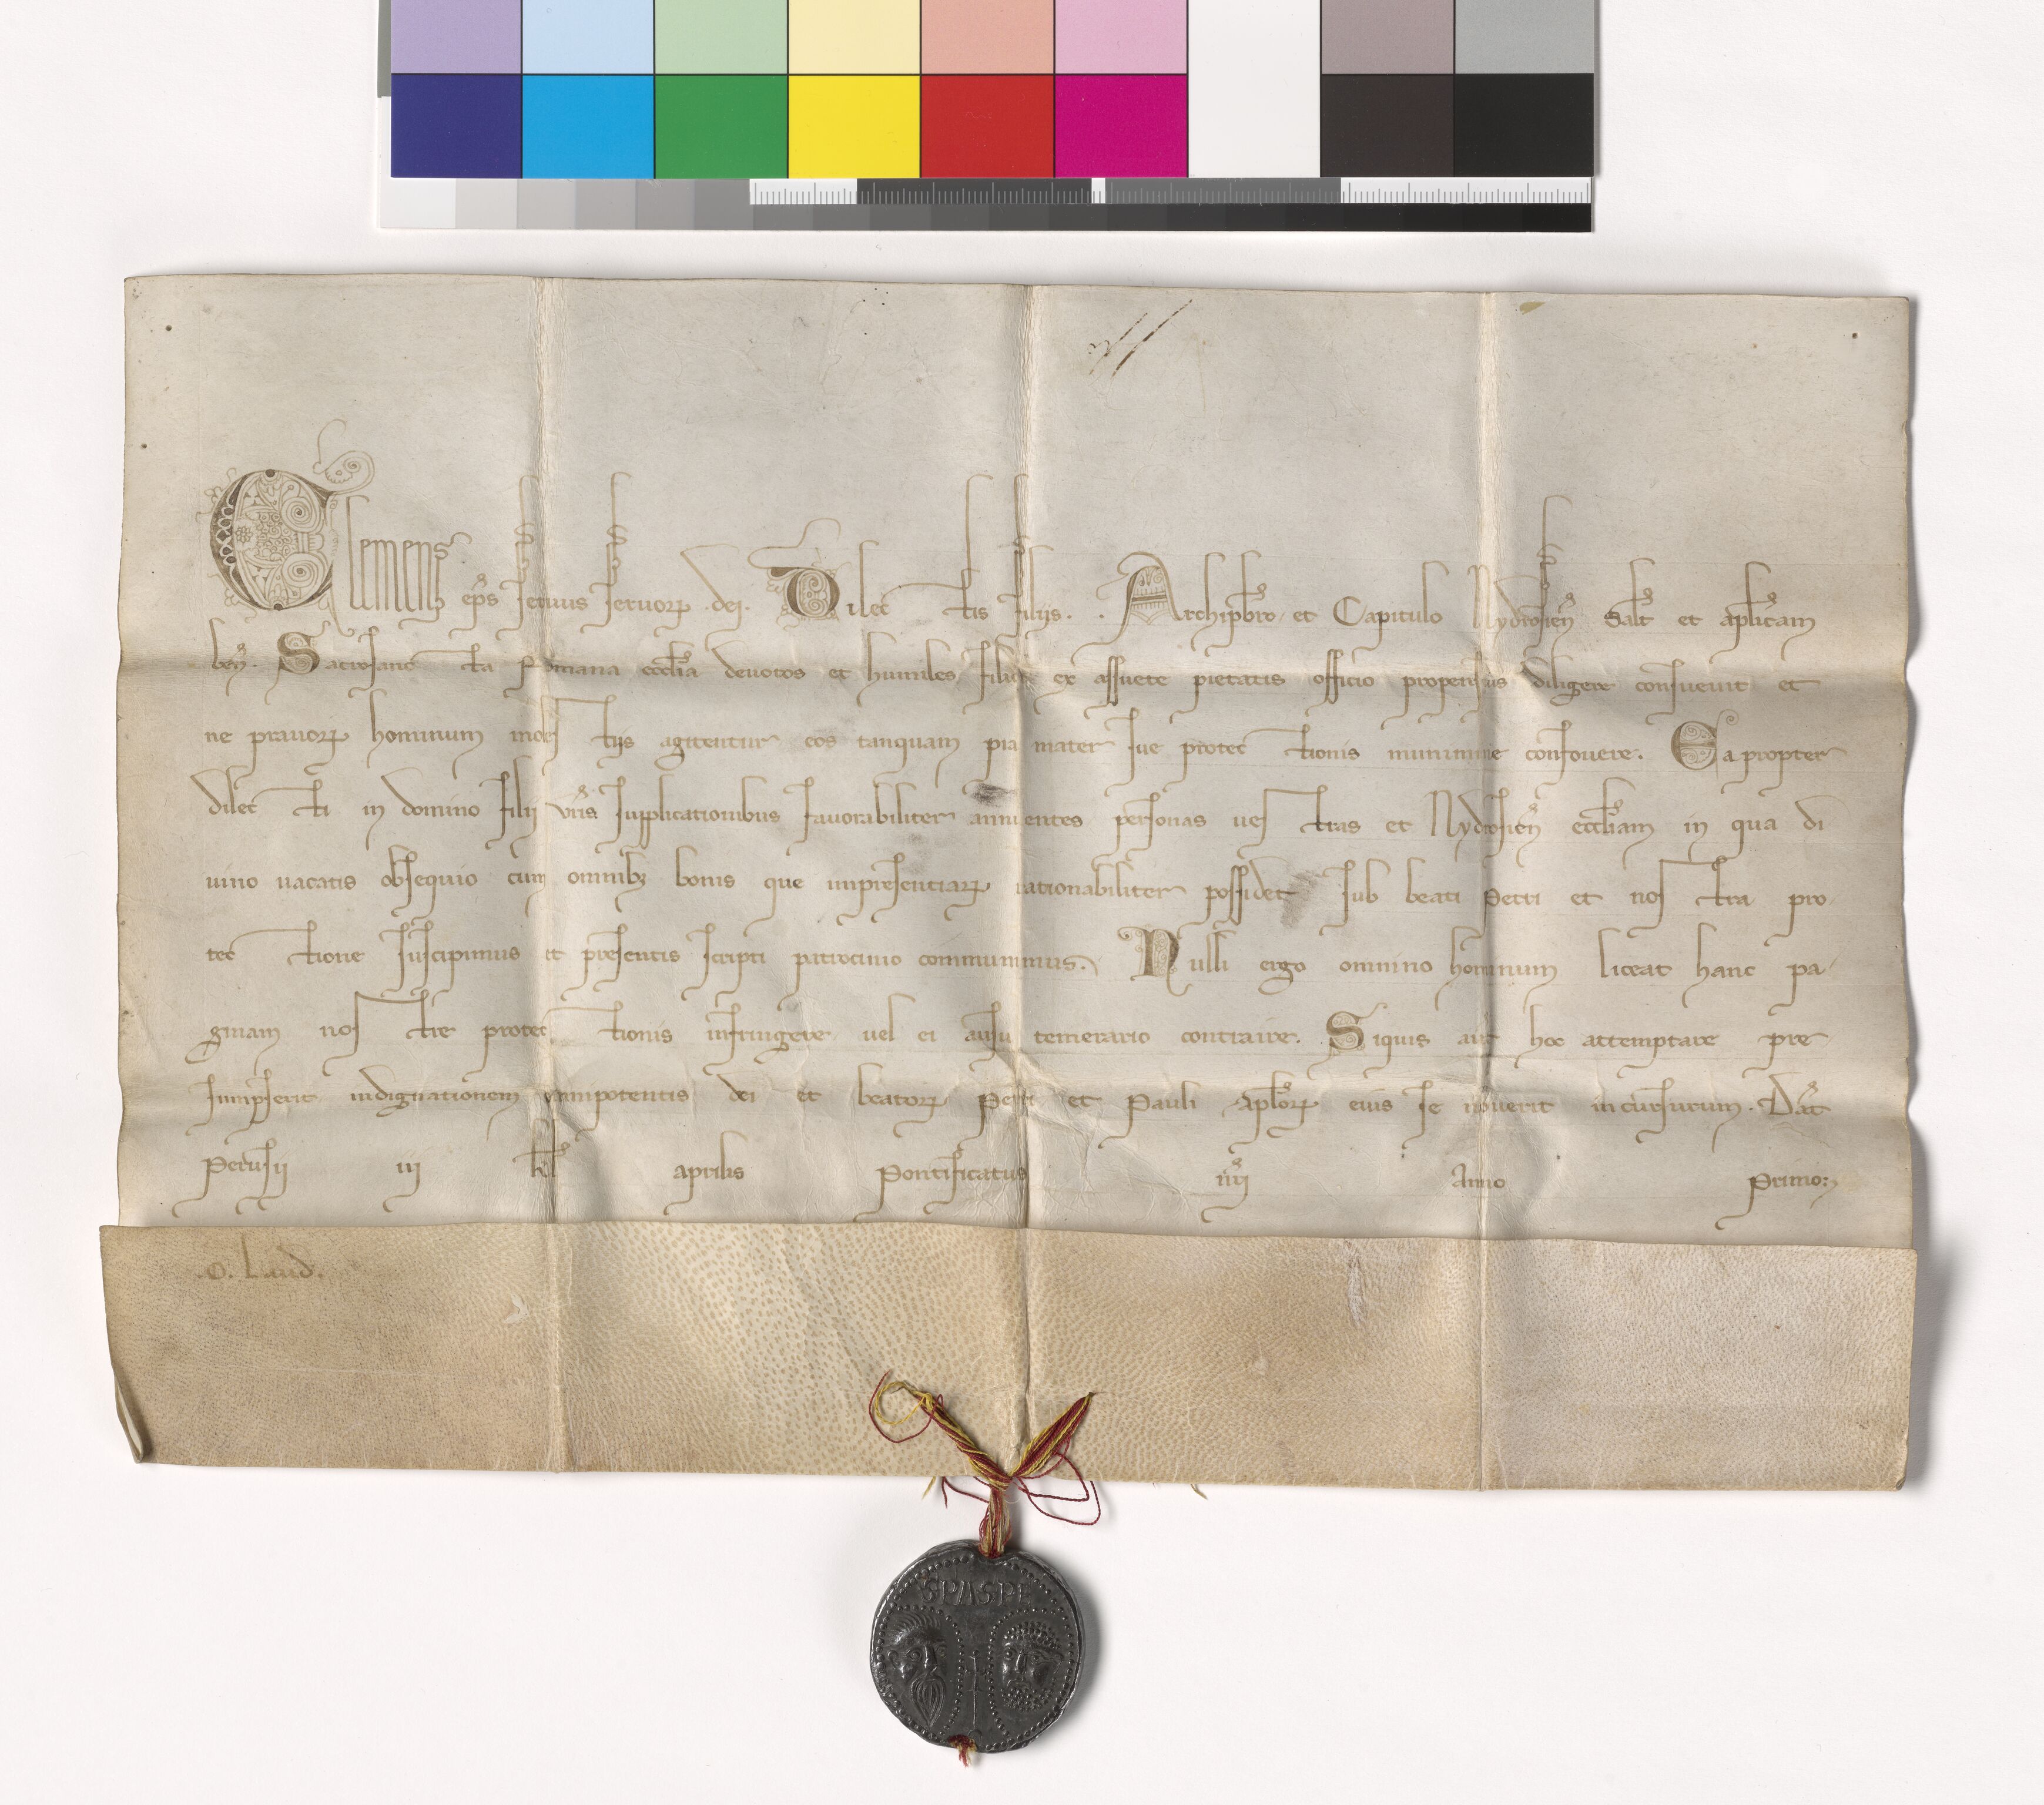 Clemens ep̄s seruus seruorꝝ dei. Dilectis filiis . . Archipb̄ro et Capitulo Nydrosien̄ salt̄ et apl̄icam
ben̄. Sacrosancta Romana eccl̄ia deuotos et humiles filios ex assuete pietatis officio propensius diligere consueuit et
ne prauorꝝ hominum molestiis agitentur eos tanquam pia mater sue protectionis munimine confouere. Eapropter
dilecti in domino filii vr̄is supplicationibus fauorabiliter annuentes personas uestras et Nydrosien̄ eccl̄iam in qua di
uino uacatis obsequio cum omnibꝫ bonis que inpresentiarꝝ rationabiliter possidet sub beati Petri et nostra pro-
tectione suscipimus et presentis scripti patrocinio communimus. Nulli ergo omnino hominum liceat hanc pa-
ginam nostre protectionis infringere uel ei ausu temerario contraire. Siquis aut̄ hoc attemptare pre
sumpserit indignationem omnipotentis dei et beatorꝝ Petri et Pauli apl̄orꝝ eius se nouerit incursurum. Dat̄
Perusii iii kl̄ aprilis Pontificatus nr̄i Anno Primo.
.o. Laud.
SPASPE